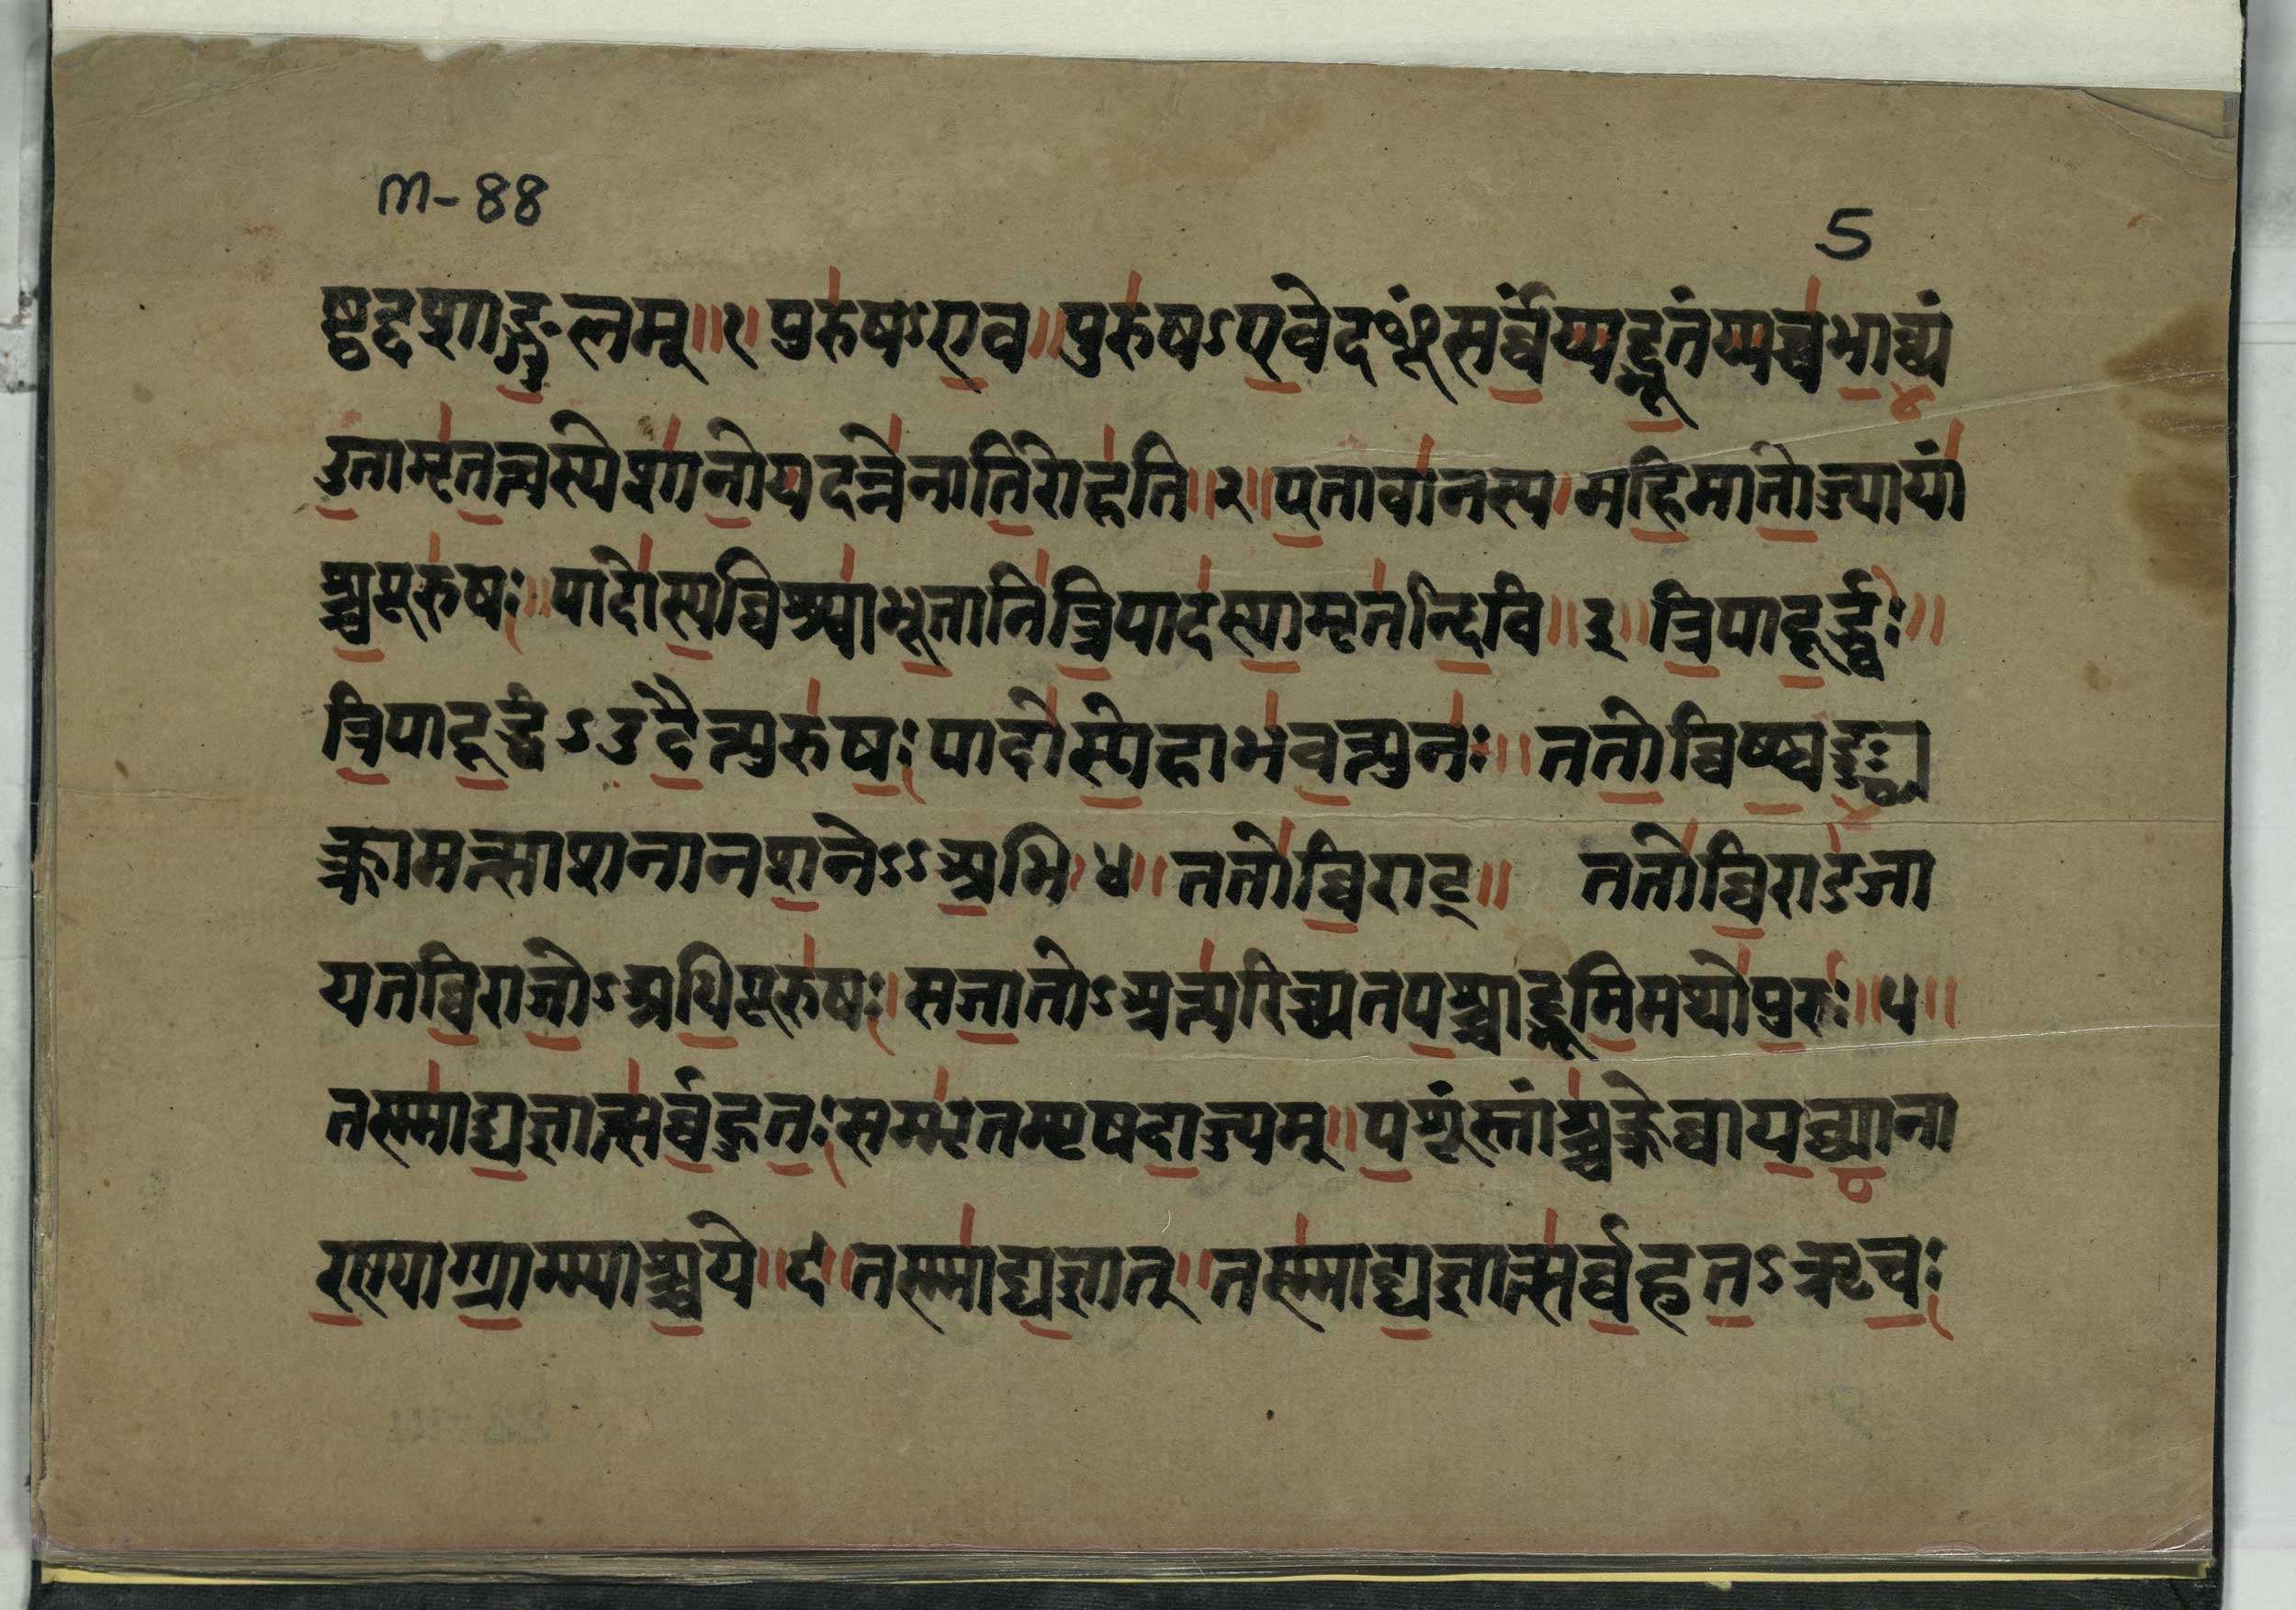 m-88
5
ष्ठद्दशाङ्गुलम् ॥१॥ पुरुषऽएव ॥ पुरुषऽएवेदᳪसर्व्वंय्यद्भूतंय्यच्चभाव्यं
उतामृतत्वस्येशानोयदन्नेनातिरोहति ॥२॥ एतावानस्य महिमातोज्यायाँ
श्चपूरुषः ॥ पादोस्यव्विश्वाभूतानित्रिपादस्यामृतन्दिवि ॥३॥ त्रिपादूर्द्ध्वः ॥
त्रिपादूर्द्ध्वऽउदैत्पुरुषः पादोस्येहाभवत्पुनः ॥ ततोव्विष्वङ्व्य
क्क्रामत्साशनानशनेऽऽअभि ४॥ ततोव्विराट् ॥ ततोव्विराडजा
यतव्विराजोऽअधिपूरुषः। सजातोऽअत्यरिच्यतपश्चाद्भूमिमथोपुरः ॥५॥
तस्माद्यज्ञात्सर्व्वहुतः सम्भृतम्पृषदाज्यम् ॥ पशूंस्ताँश्चक्क्रेवायव्याना
रण्याग्ग्राम्म्याश्चये ॥६॥ तस्माद्यज्ञात् ॥ तस्माद्यज्ञात्सर्व्वहुतऽऋचः